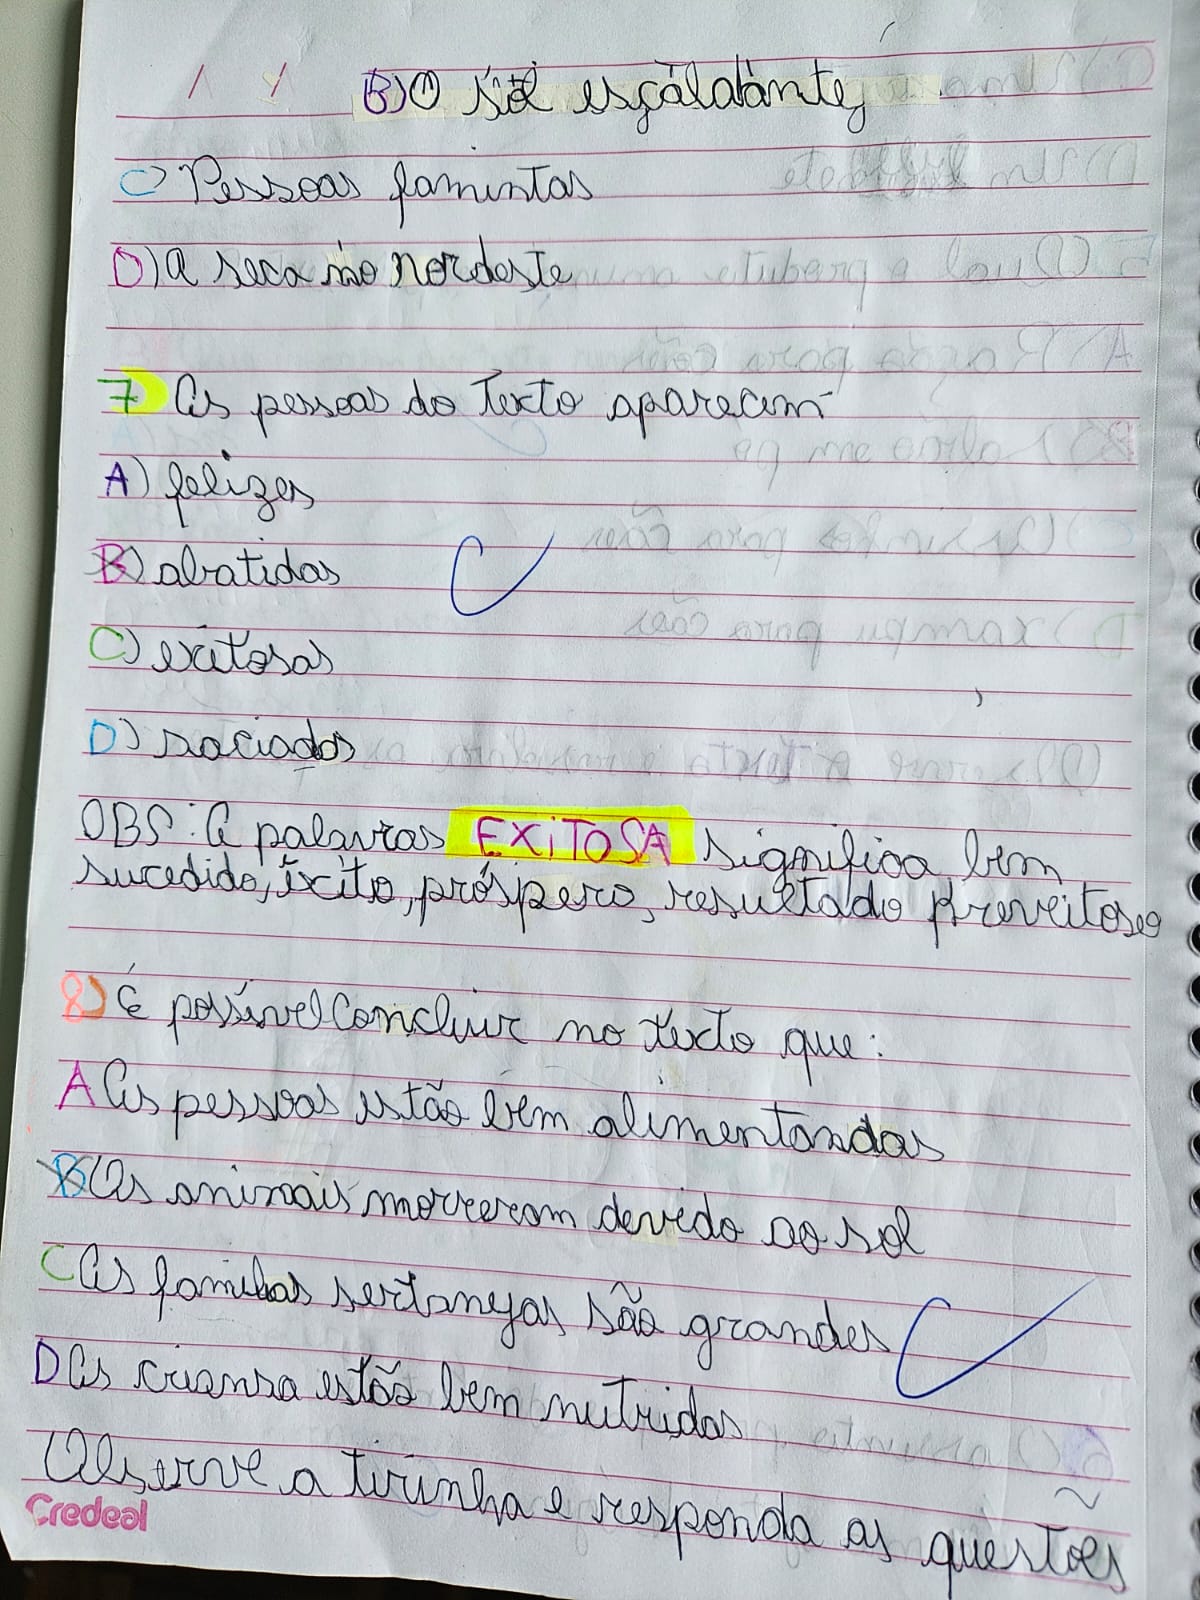 B) O sol esçaldante,
C) Pessoas famintas
D) A seca no nordeste
7 As pessoas do Texto aparecem
A) felizes
B) abatidas
C) exitosas
D) saciados
OBS: A palavras EXiTOSA significa bem
sucedido, êxito, próspero, resultado
8) É possível concluir no texto que:
A As pessoas estão bem alimentandas
B Os animais morreram devido ao sol
C As familias sertanejas são grandes
D As criansa estão bem nutridas
Observe a tirinha e responda as questões
Credeal